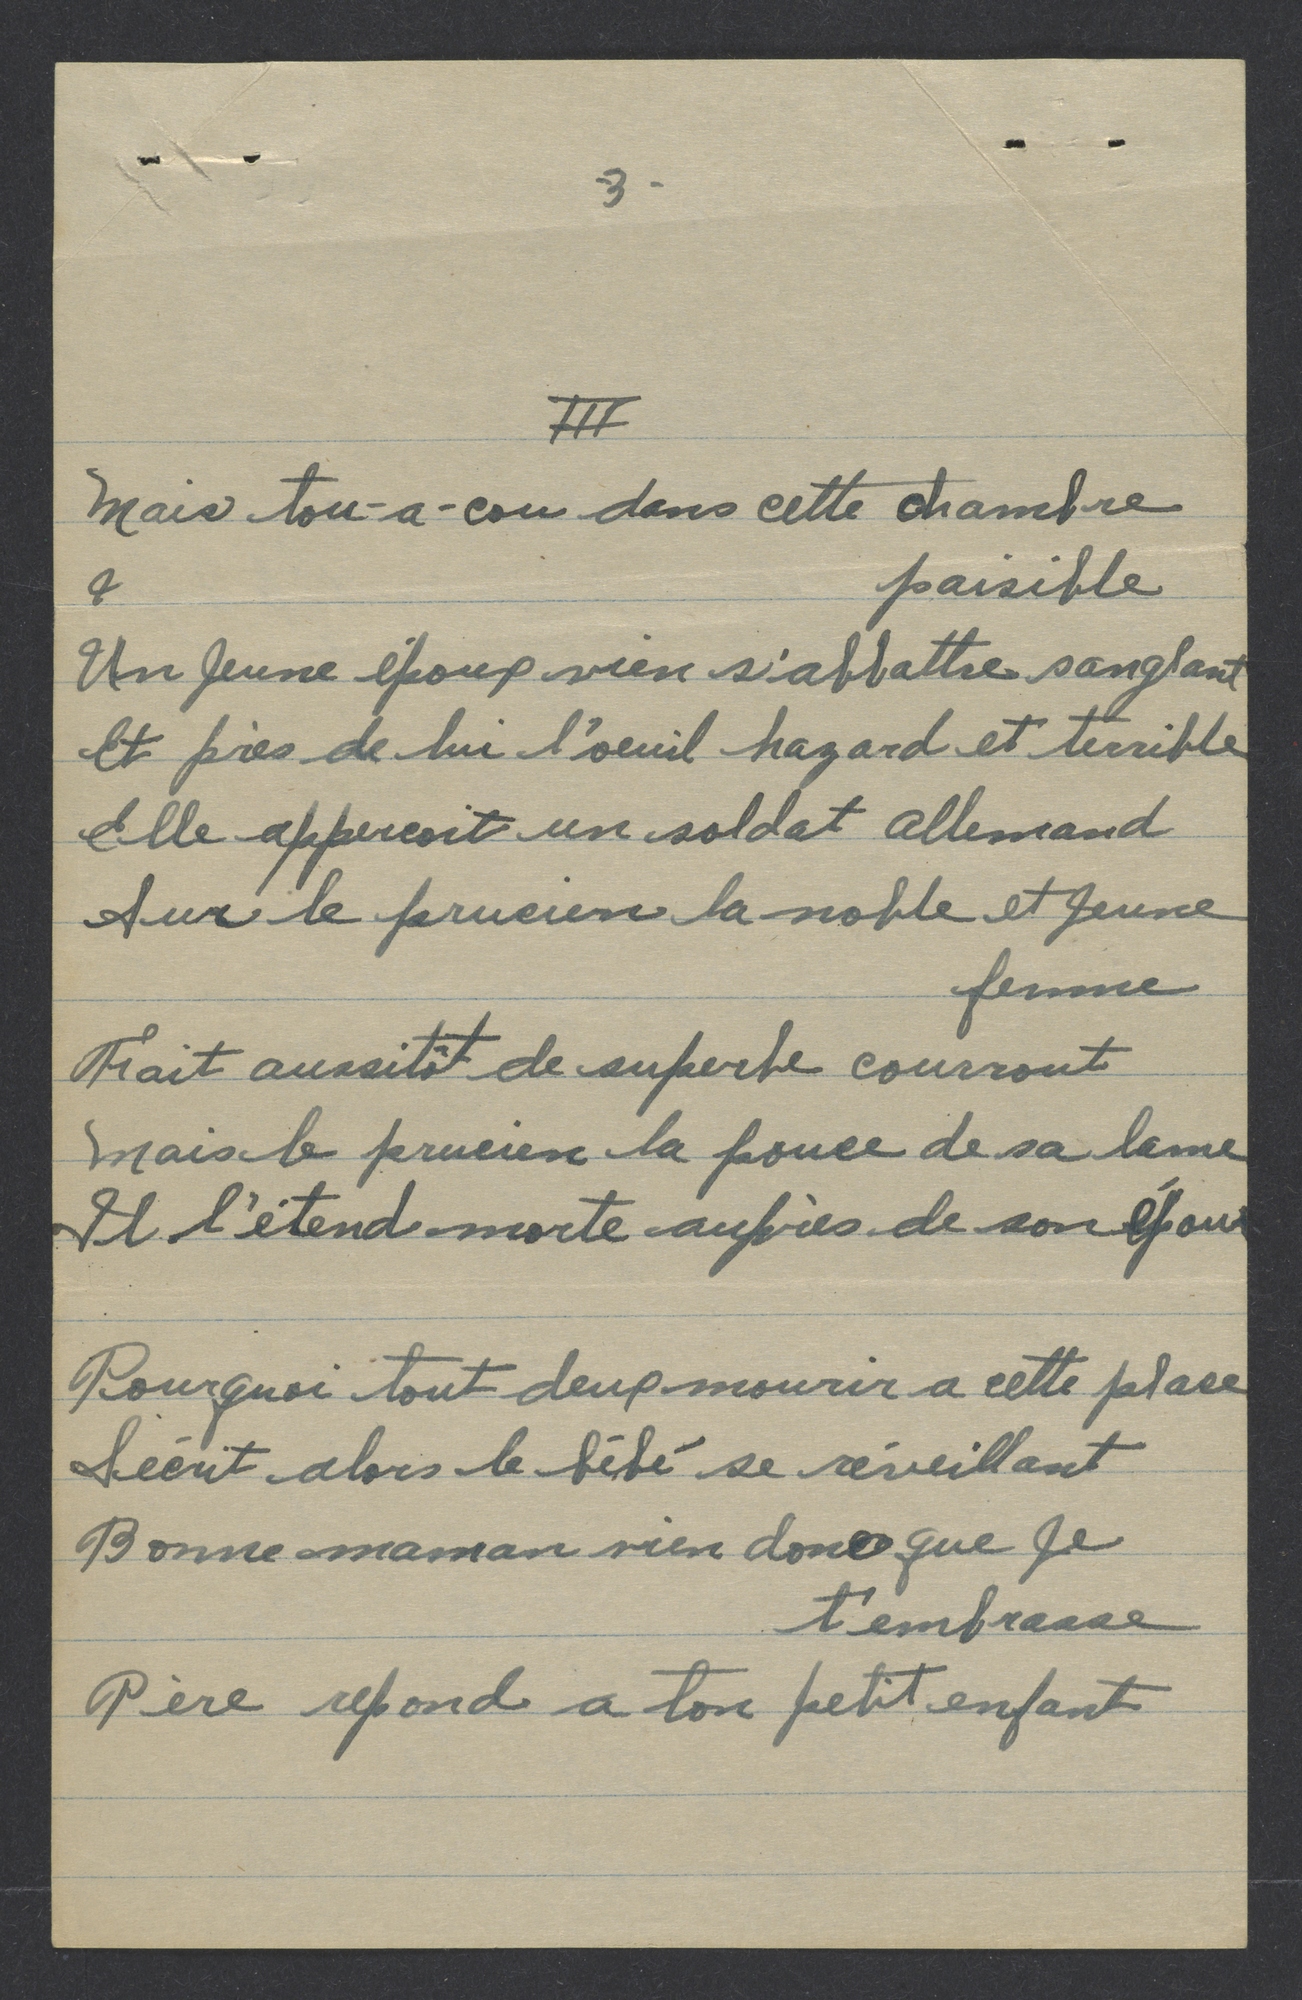 -3-
III
Mais tou-a-cou dans cette chambre
paisible
Un Jeune époux vien s'abbattre sanglant
Et près de lui l'oeuil hazard et terrible
Elle apperçoit un soldat allemand
Sur le prucien la noble et Jeune
femme
Frait aussitôt de superbe courrout
Mais le prucien la pouce de sa lame
Il l'étend morte auprès de son époux
Pourquoi tout deux mourir a cette plase
S'écrit alors le bébé se réveillant
Bonne maman vien donc que Je
t'embrasse
Père repond a ton petit enfant